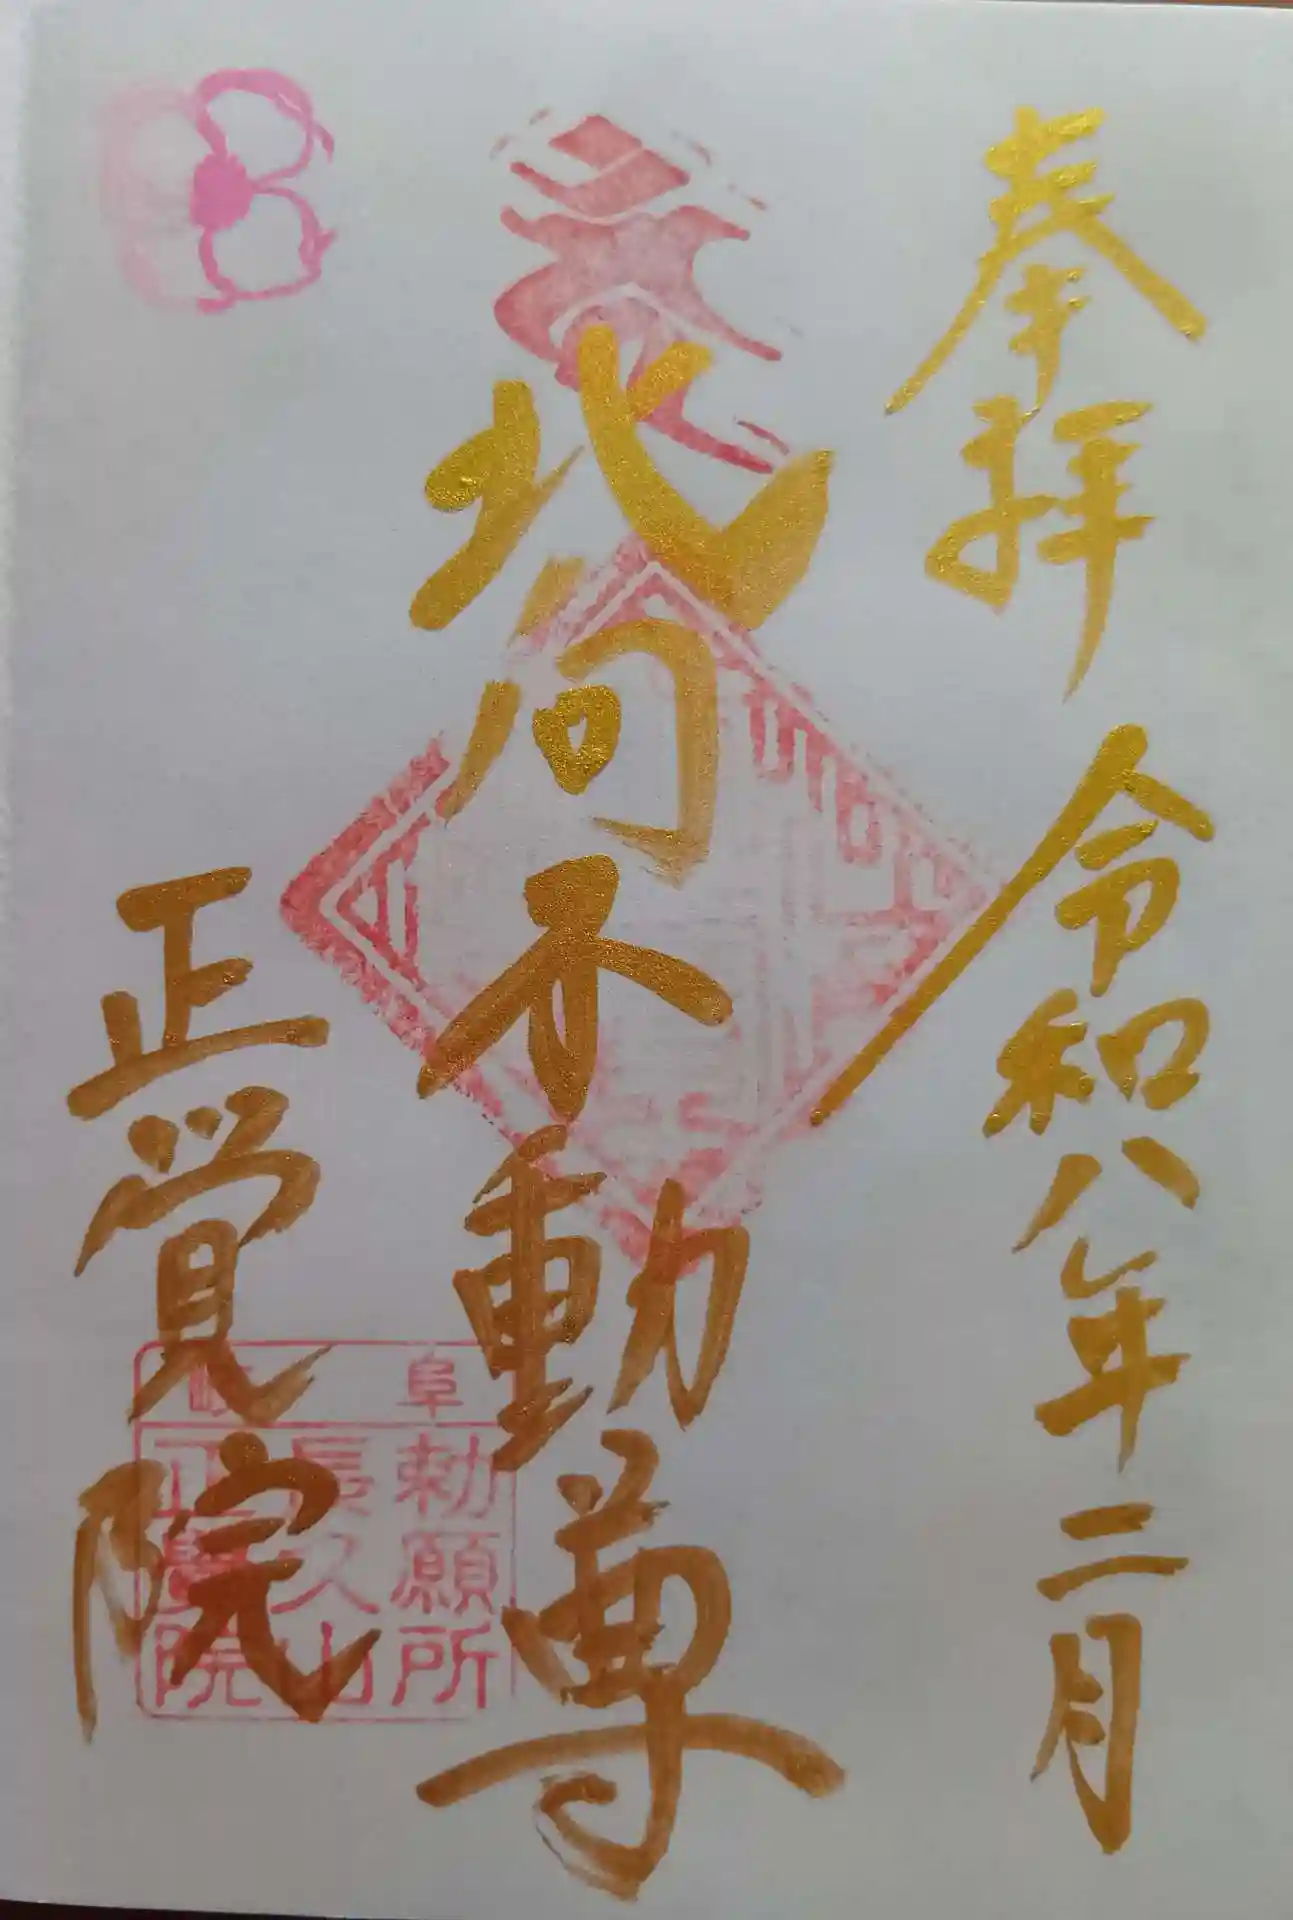 奉拝 令和八年二月
北向不動尊
正覚院
岐阜
勅願所
長久山
正覺院